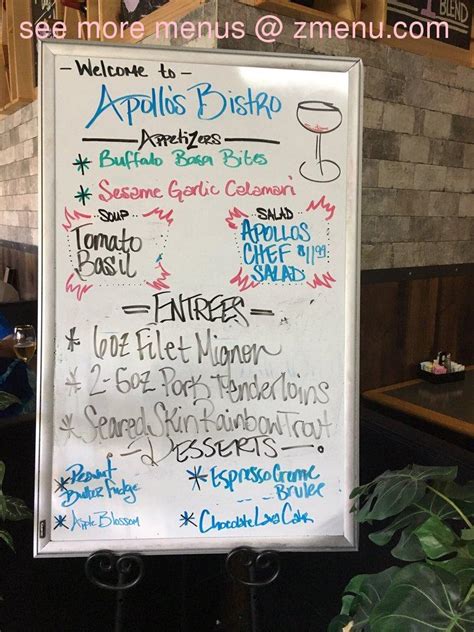 see more menus @ zmenu.com
BLEND
- Welcome to -
Apollo's Bistro
Appetizers
* Buffalo Basa Bites
* Sesame Garlic Calamari
SOUP
Tomato
Basil
SALAD
APOLLOS
CHEF $11.99
SALAD
ENTREES
* 6oz Filet Mignon
* 2-6oz Pork Tenderloins
* Seared Skin Rainbow Trout
DESSERTS
* Peanut
Butter Fudge
* Apple Blossom
* Espresso Creme
Brulee
* Chocolate Lava Cake